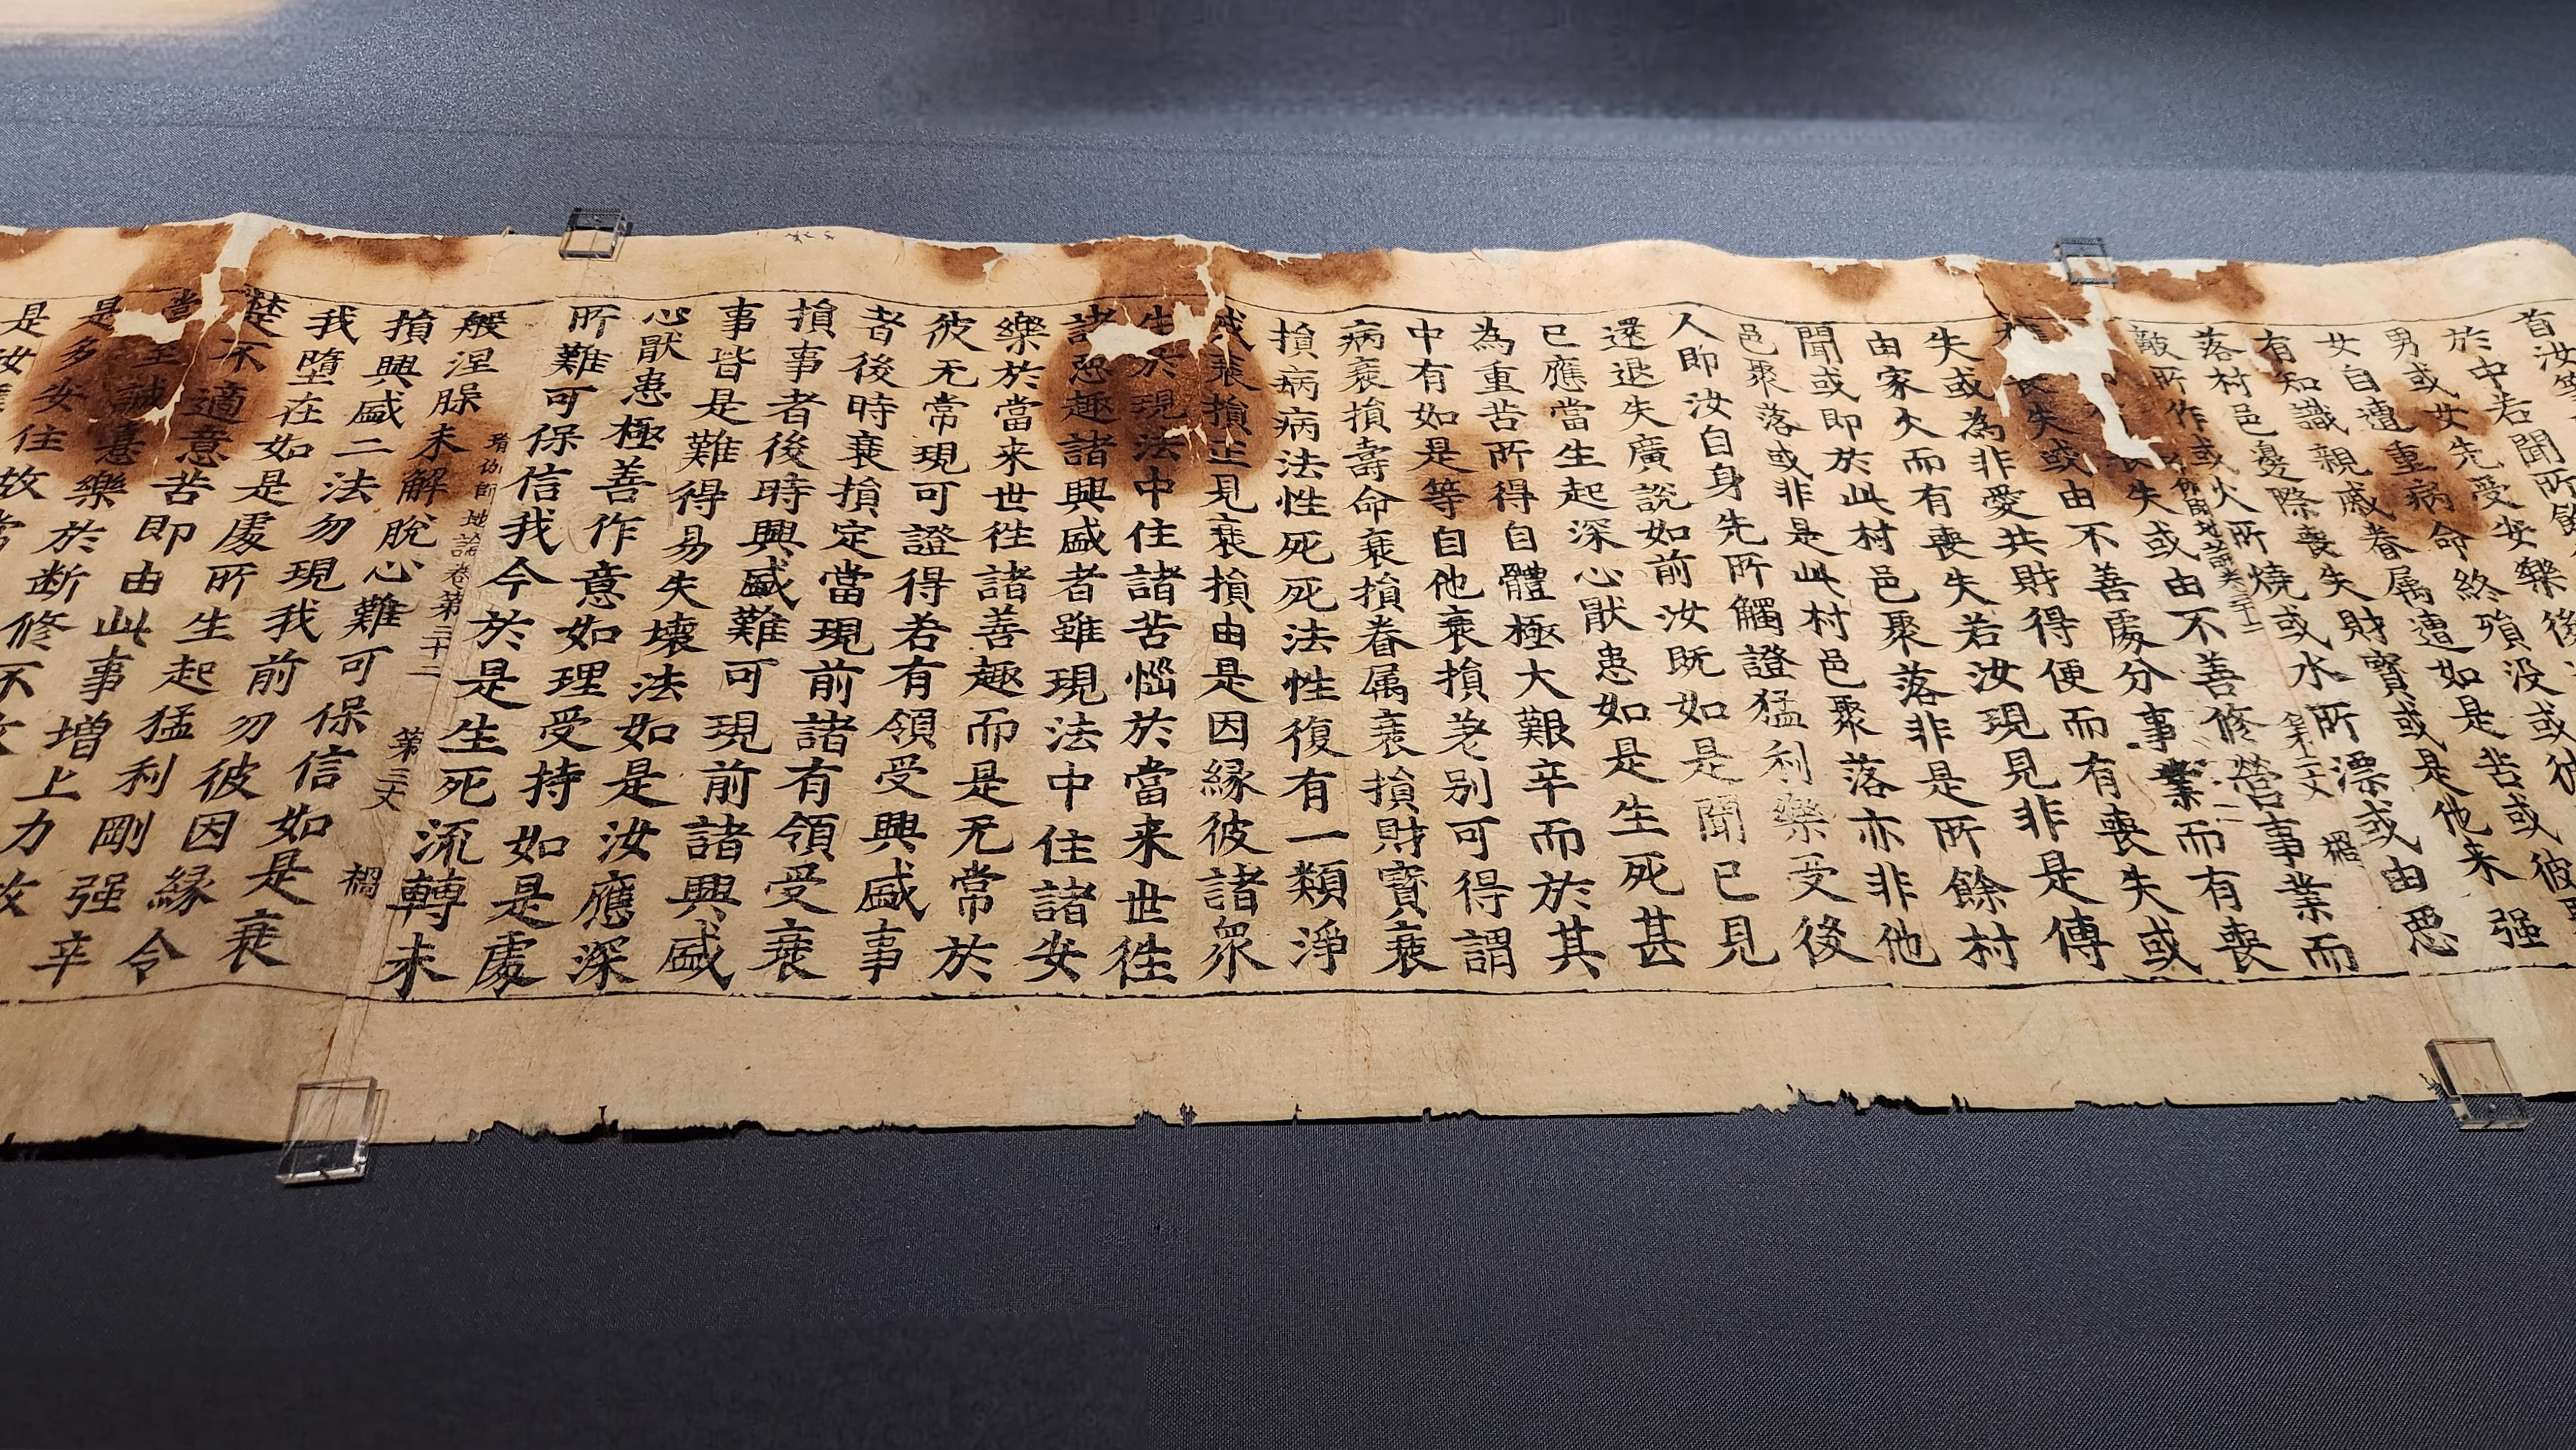 首汝等
於中若聞所餘
男或女先受安樂後
女自遭重病命終殞没或彼
有知識親戚眷属遭如是苦或彼
落村邑邊際喪失財寶或是他来强
敵所作或火所燒或水所漂或由惡
瑜伽師地論卷三十二 第二丈 禍
喪失或由不善修營事業而
喪失或由不善處分事業而有喪
失或為非愛共財得便而有喪失或
由家火而有喪失若汝現見非是傳
聞或即於此村邑聚落非是所餘村
邑聚落或非是此村邑聚落亦非他
人即汝自身先所觸證猛利樂受後
還退失廣說如前汝既如是聞已見
已應當生起深心猒患如是生死甚
為重苦所得自體極大艱辛而於其
中有如是等自他衰損差别可得謂
病衰損壽命衰損眷属衰損財寶衰
損病病法性死死法性復有一類淨
戒衰損正見衰損由是因緣彼諸眾
生於現法中住諸苦惱於當来世往
諸惡趣諸興盛者雖現法中住諸安
樂於當来世往諸善趣而是无常於
彼无常現可證得若有領受興盛事
者後時衰損定當現前諸有領受衰
損事者後時興盛難可現前諸興盛
事皆是難得易失壞法如是汝應深
心猒患極善作意如理受持如是處
所難可保信我今於是生死流轉未
瑜伽師地論卷第三十二 第三丈 禍
般涅槃未解脫心難可保信如是衰
損興盛二法勿現我前勿彼因緣令
我墮在如是處所生起猛利剛强辛
楚不適意苦即由此事增上力故
當至誠意樂於断修不
是多安住故常
是汝